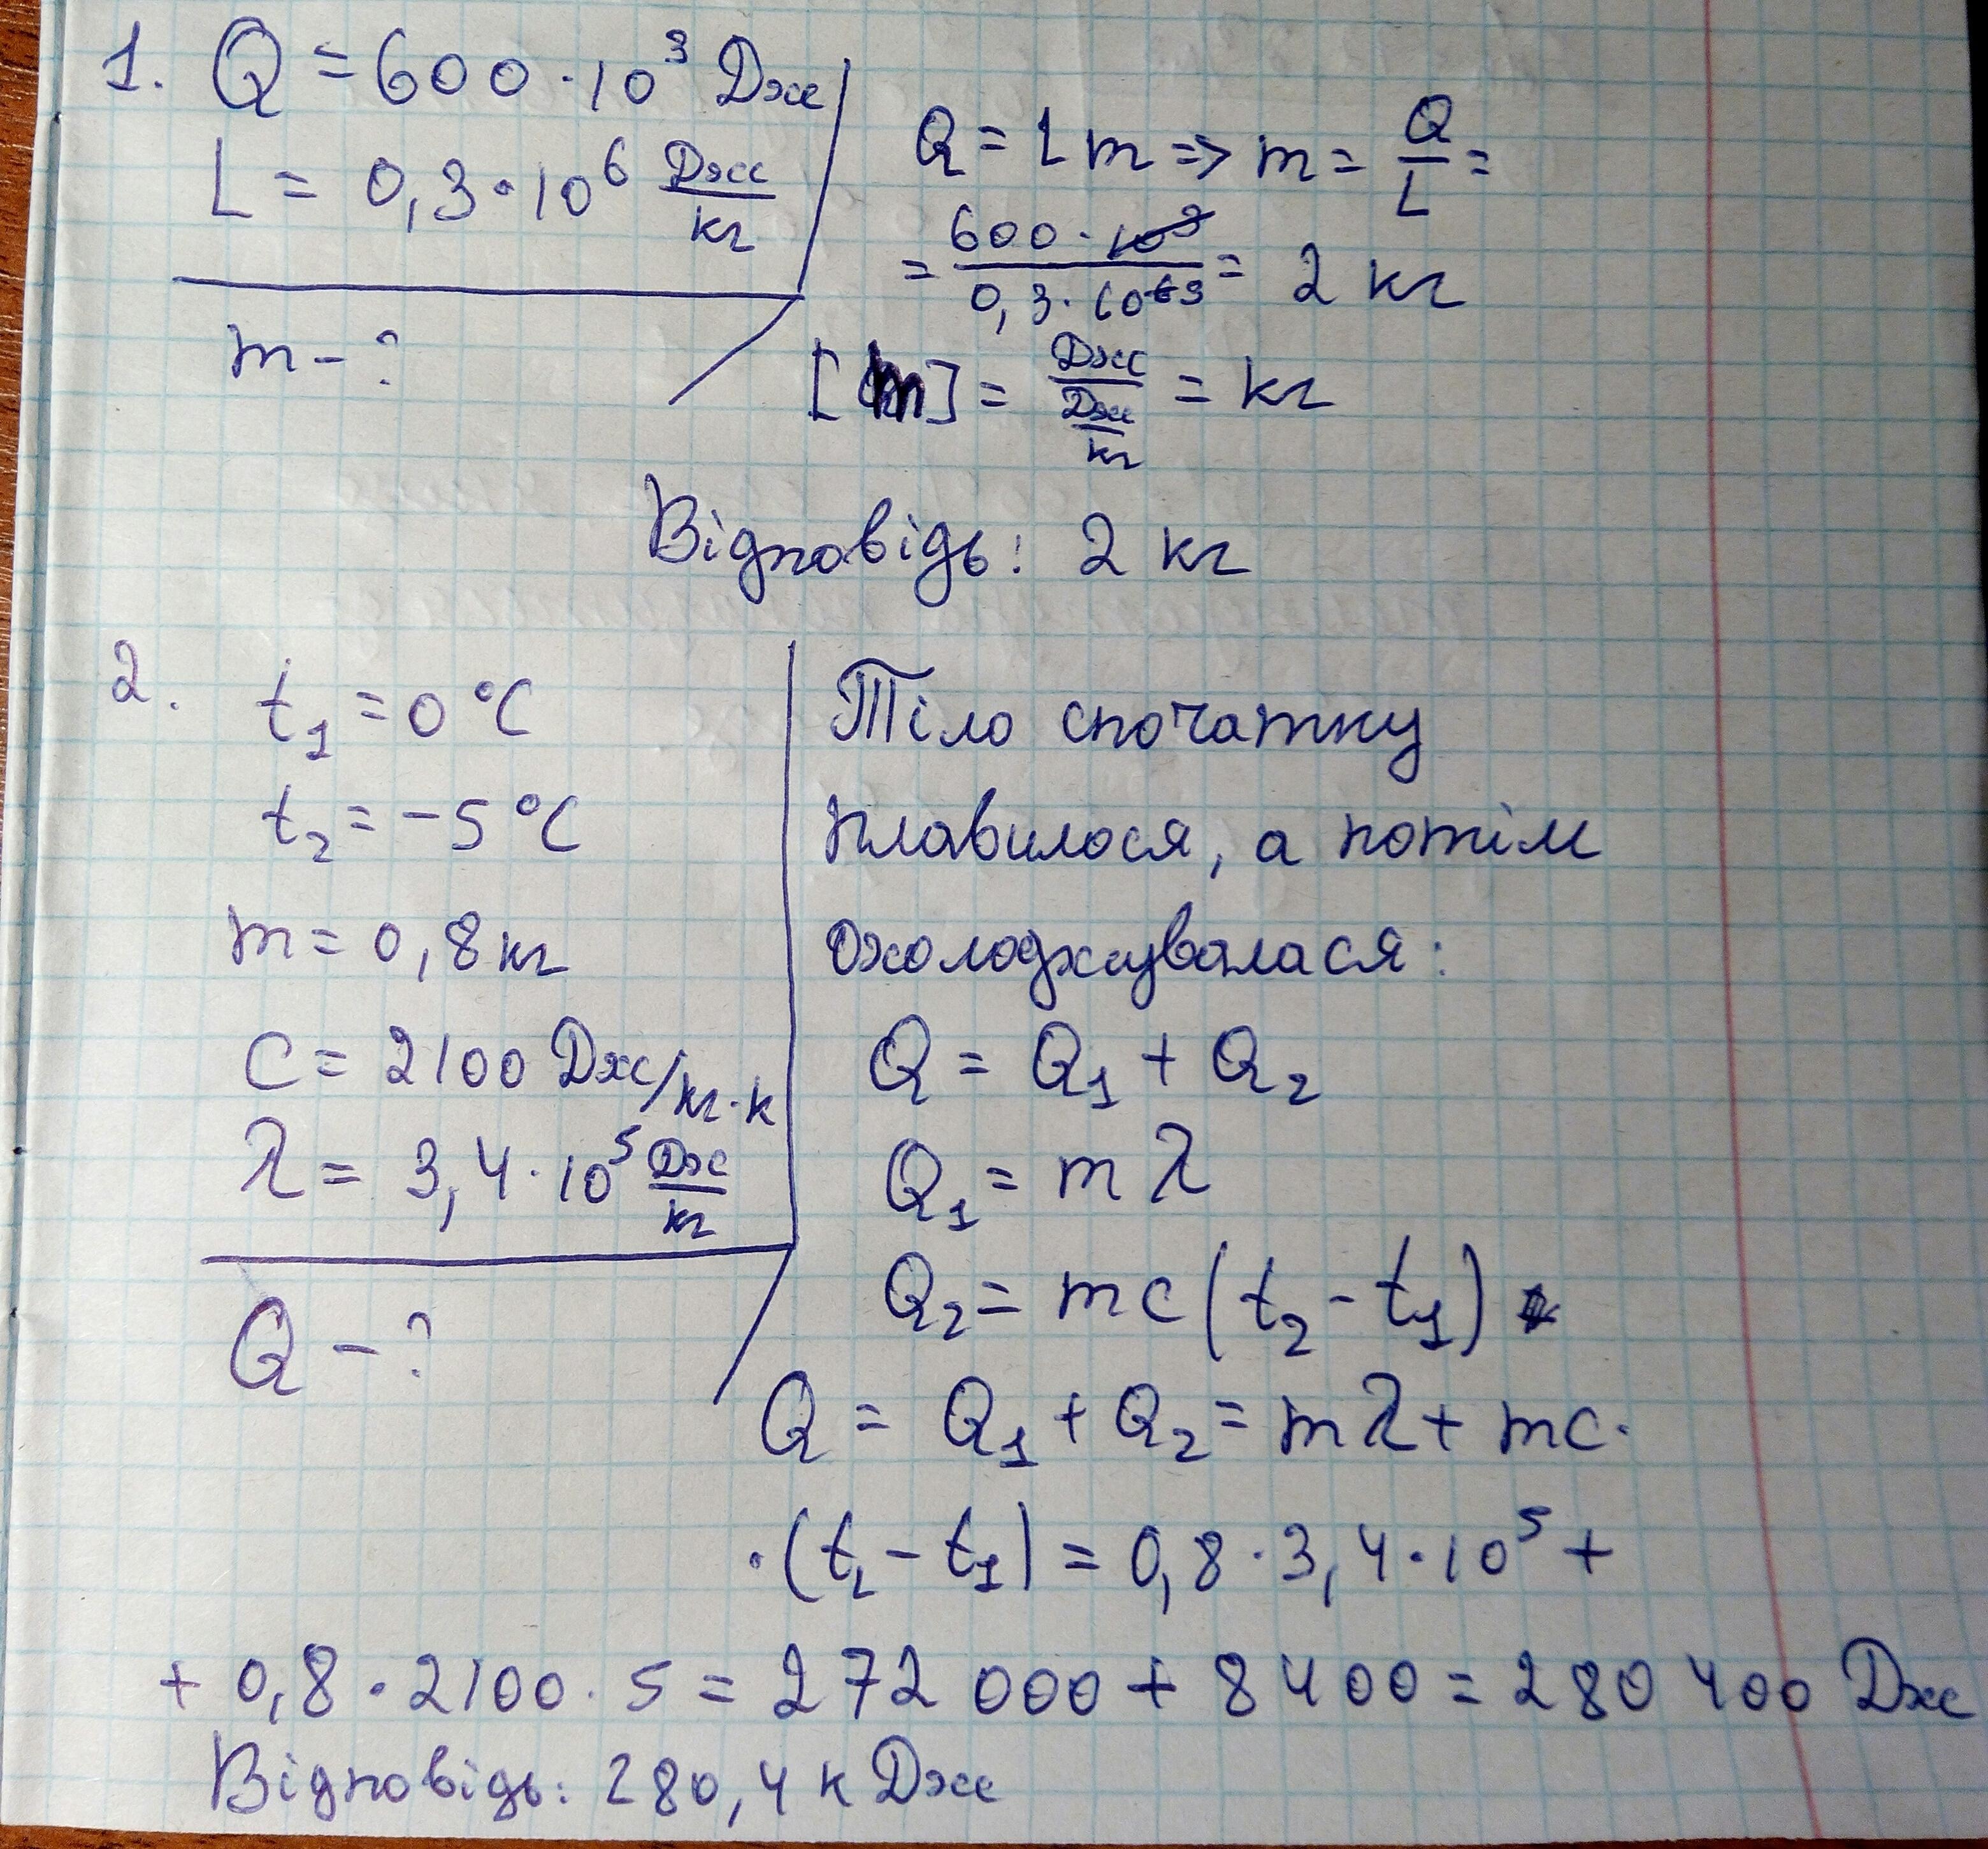 1. Q = 600 · 10³ Дж
L = 0,3 · 10⁶ Дж/кг
m - ?
Q = L m => m = Q/L =
= 600 · 10³ / 0,3 · 10⁶³ = 2 кг
[m] = Дж / Дж/кг = кг
Відповідь: 2 кг
2. t₁ = 0 °C
t₂ = -5 °C
m = 0,8 кг
c = 2100 Дж/кг·К
λ = 3,4 · 10⁵ Дж/кг
Q - ?
Тіло спочатку
плавилося, а потім
охолоджувалася:
Q = Q₁ + Q₂
Q₁ = m λ
Q₂ = mc (t₂ - t₁)
Q = Q₁ + Q₂ = mλ + mc ·
· (t₂ - t₁) = 0,8 · 3,4 · 10⁵ +
+ 0,8 · 2100 · 5 = 272 000 + 8 400 = 280 400 Дж
Відповідь: 280,4 кДж